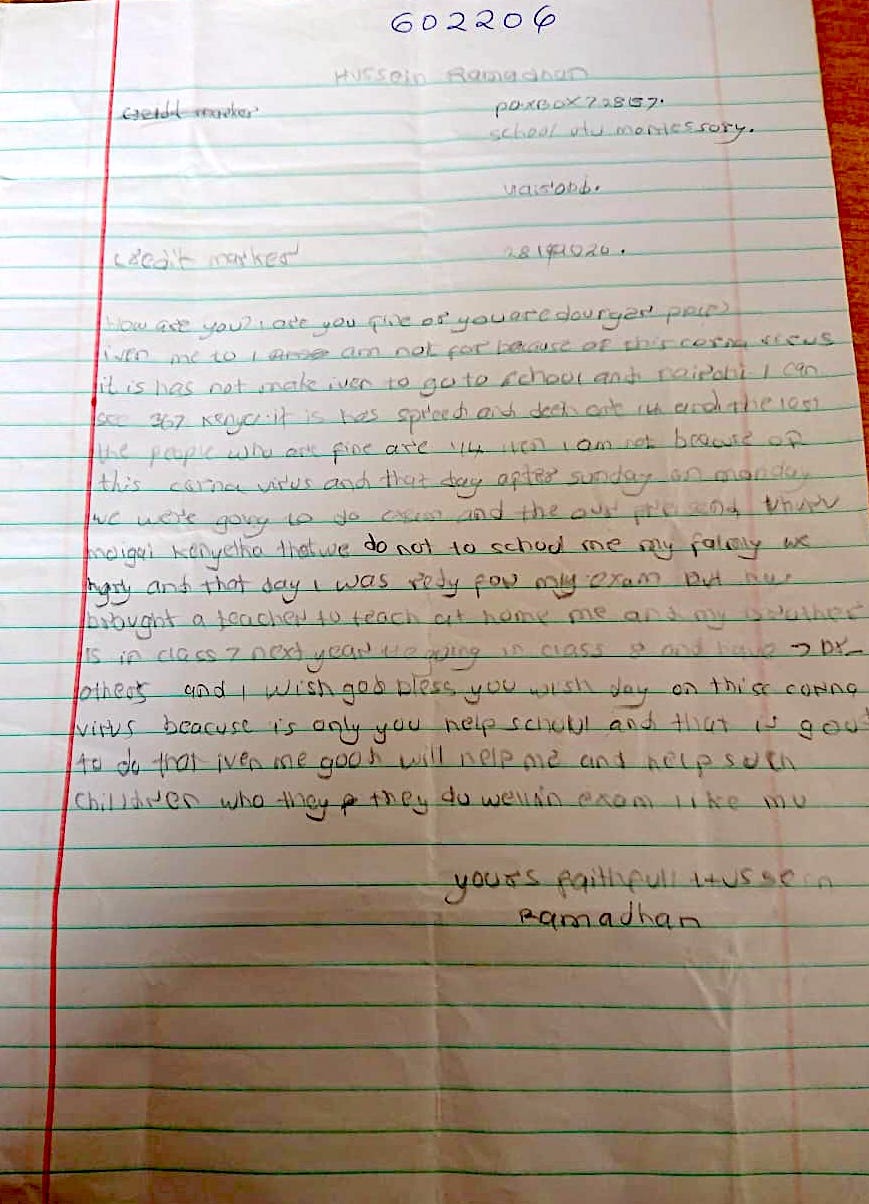 602206
Hussein Ramadhan
credit marker poxBox72857.
school montessory.
Nairobi.
credit marker
How are you? are you fine or you are
iven me to I am not for because of this corna virus
it is has not make iven to go to school and nairobi I can
see 367 Kenya it is has spreed and deeh are 14 and the
the people who are fine are 114 iven I am not beacuse of
this corna virus and that day after sunday on monday
we were going to do exam and the our
moigai Kenyetha that we do not to school me my faimly we
hgry and that day I was redy for my exam but
brought a teacher to teach at home me and my brother
is in class 7 next year He going in class 8 and have 7 br-
others and I wish god bless you wish day on thise corna
virus beacuse is only you help school and that is good
to do that iven me gooh will help me and help such
childdren who they they do well in exam like
yours faithfull Hussein
Ramadhan